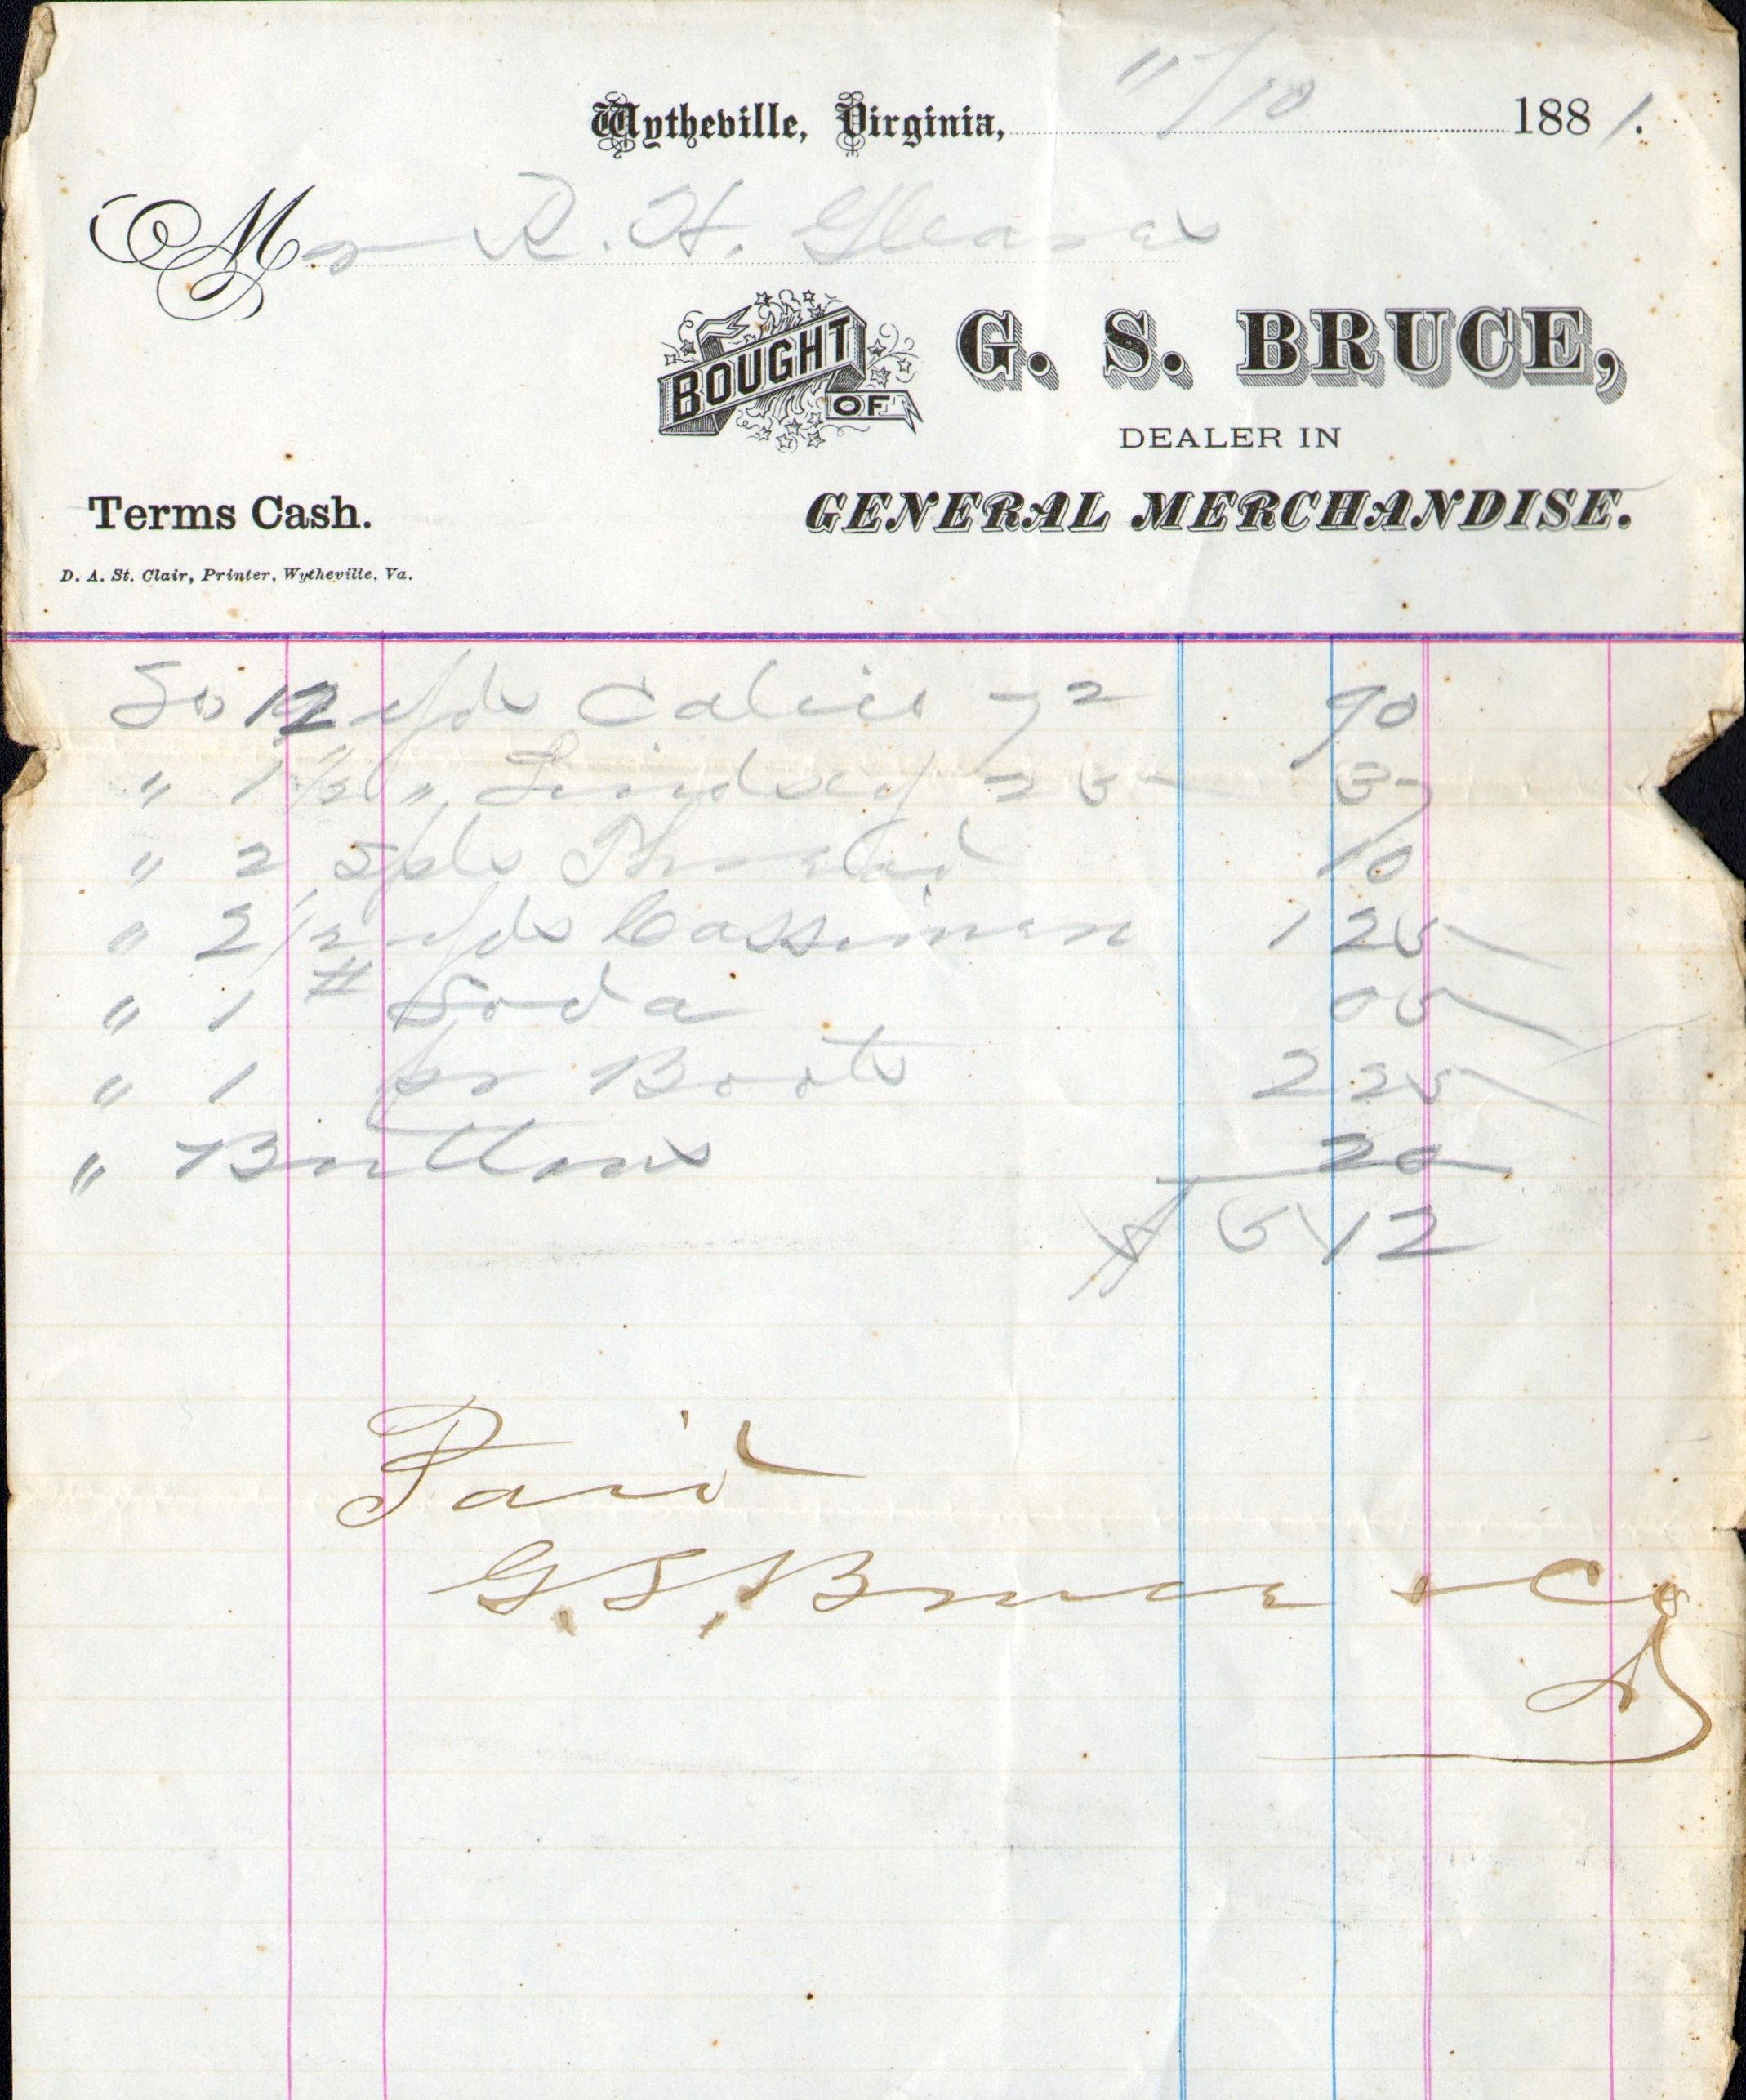 Wytheville, Virginia, 11/10 1881.
Mr R. H. Gleaves
BOUGHT OF G. S. BRUCE,
DEALER IN
Terms Cash. GENERAL MERCHANDISE.
D. A. St. Clair, Printer, Wytheville, Va.
To 12 yds Calico 7 2 90
" 1 1/2 " Lindsey 25 37
" 2 Spls Thread 10
" 2 1/2 yds Cassimere 1 25
" 1 # Soda 05
" 1 pr Boots 2 25
" Buttons 20
$ 5 12
Paid
G. S. Bruce & Co